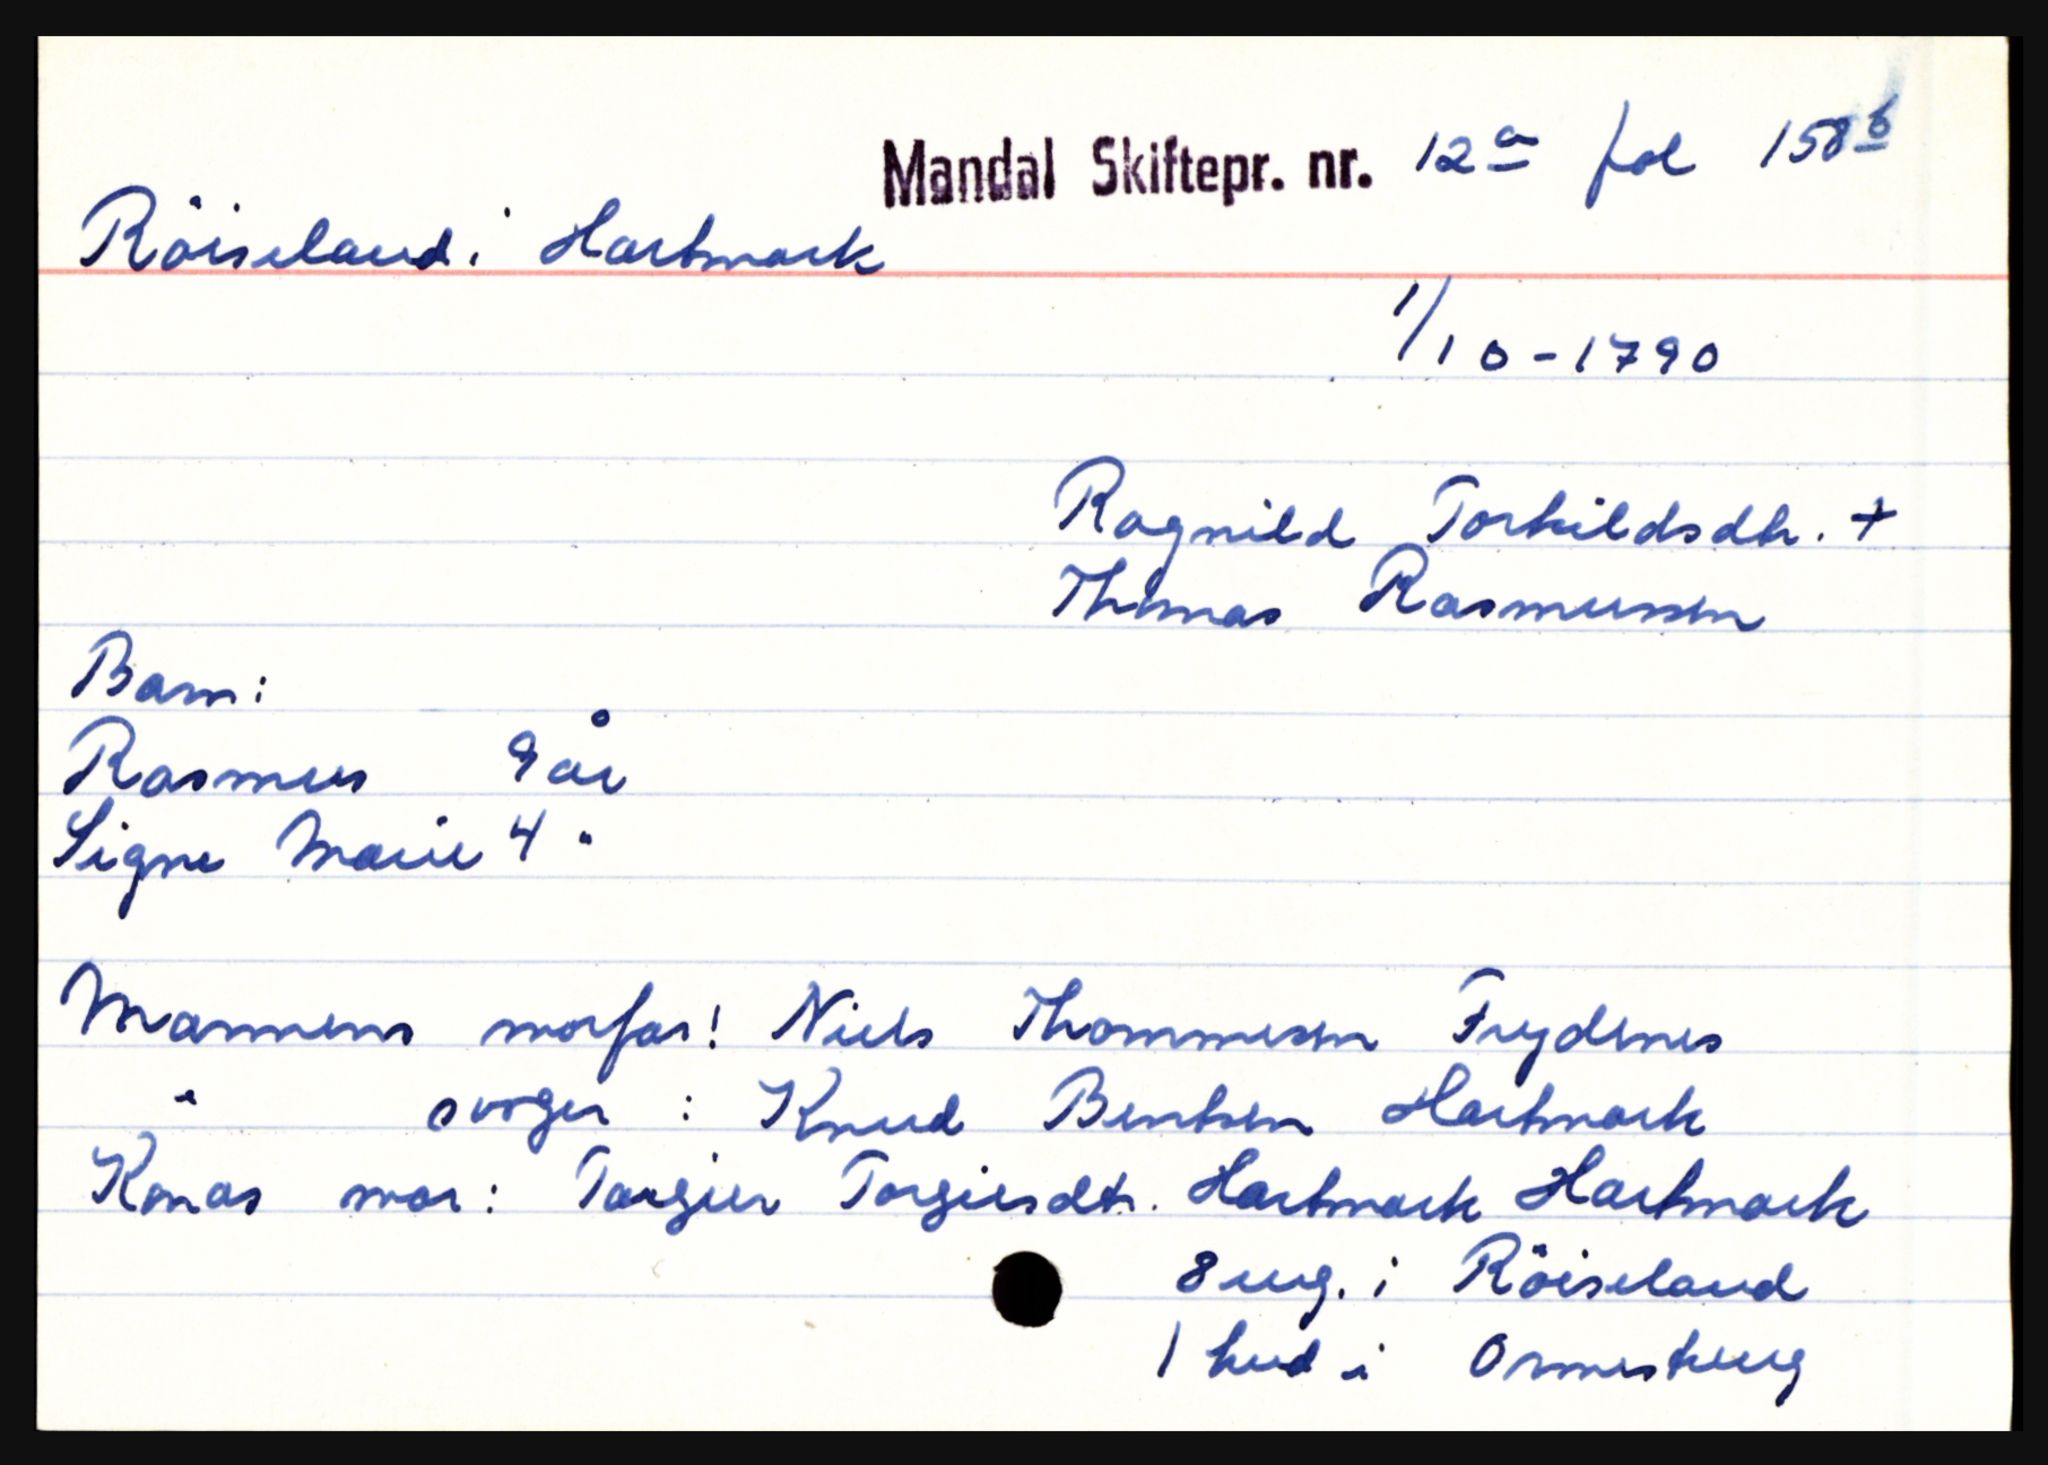 Mandal Skiftepr. nr. 12a fol 158b
Röiseland i Hartmark
1/10-1790
Ragnild Torkildsdtr. +
Thomas Rasmussen
Barn:
Rasmus 9 år
Signe Marie 4 "
Mannens morfar: Niels Thommesen Frydenes
" svoger : Knud Bentsen Hartmark
Konas mor: Torgier Torgiersdtr. Hartmark Hartmark
8 eng. i Röiseland
1 hud i Ormestveug